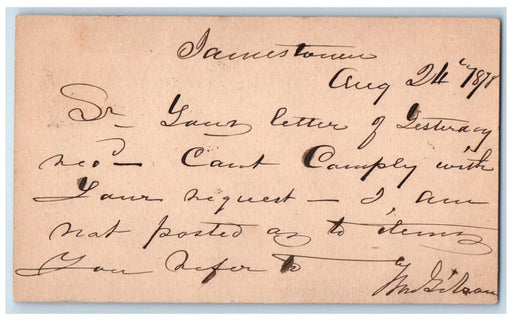 Jamestown
Aug 24" 1878
Sr Your letter of Yesterday
rec'd — Cant Comply with
Your request — I, am
not posted as to items
You refer to